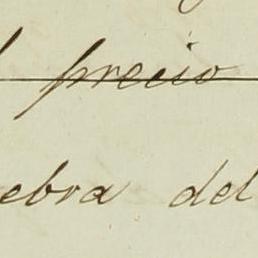 precio
ebra del